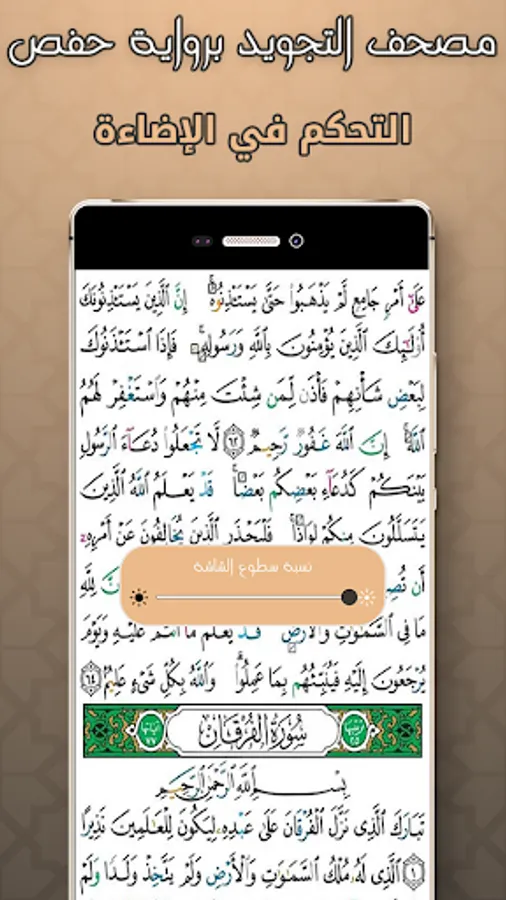 مصحف التجويد برواية حفص
التحكم في الإضاءة
عَلَىٰٓ أَمۡرٖ جَامِعٖ لَّمۡ يَذۡهَبُواْ حَتَّىٰ يَسۡتَـٔۡذِنُوهُۚ إِنَّ ٱلَّذِينَ يَسۡتَـٔۡذِنُونَكَ
أُوْلَٰٓئِكَ ٱلَّذِينَ يُؤۡمِنُونَ بِٱللَّهِ وَرَسُولِهِۦۚ فَإِذَا ٱسۡتَـٔۡذَنُوكَ
لِبَعۡضِ شَأۡنِهِمۡ فَأۡذَن لِّمَن شِئۡتَ مِنۡهُمۡ وَٱسۡتَغۡفِرۡ لَهُمُ
ٱللَّهَۚ إِنَّ ٱللَّهَ غَفُورٞ رَّحِيمٞ ٦٢ لَّا تَجۡعَلُواْ دُعَآءَ ٱلرَّسُولِ
بَيۡنَكُمۡ كَدُعَآءِ بَعۡضِكُم بَعۡضٗاۚ قَدۡ يَعۡلَمُ ٱللَّهُ ٱلَّذِينَ
يَتَسَلَّلُونَ مِنكُمۡ لِوَاذٗاۚ فَلۡيَحۡذَرِ ٱلَّذِينَ يُخَالِفُونَ عَنۡ أَمۡرِهِۦٓ
أَن لِلَّهِ
نسبة سطوع الشاشة
مَا فِي ٱلسَّمَٰوَٰتِ وَٱلۡأَرۡضِۖ قَدۡ يَعۡلَمُ مَآ أَنتُمۡ عَلَيۡهِ وَيَوۡمَ
يُرۡجَعُونَ إِلَيۡهِ فَيُنَبِّئُهُم بِمَا عَمِلُواْۗ وَٱللَّهُ بِكُلِّ شَيۡءٍ عَلِيمُۢ ٦٤
ترتيبها ٢٥ سُورَةُ الفُرۡقَانِ آياتها ٧٧
بِسۡمِ ٱللَّهِ ٱلرَّحۡمَٰنِ ٱلرَّحِيمِ
تَبَارَكَ ٱلَّذِي نَزَّلَ ٱلۡفُرۡقَانَ عَلَىٰ عَبۡدِهِۦ لِيَكُونَ لِلۡعَٰلَمِينَ نَذِيرًا
١ ٱلَّذِي لَهُۥ مُلۡكُ ٱلسَّمَٰوَٰتِ وَٱلۡأَرۡضِ وَلَمۡ يَتَّخِذۡ وَلَدٗا وَلَمۡ